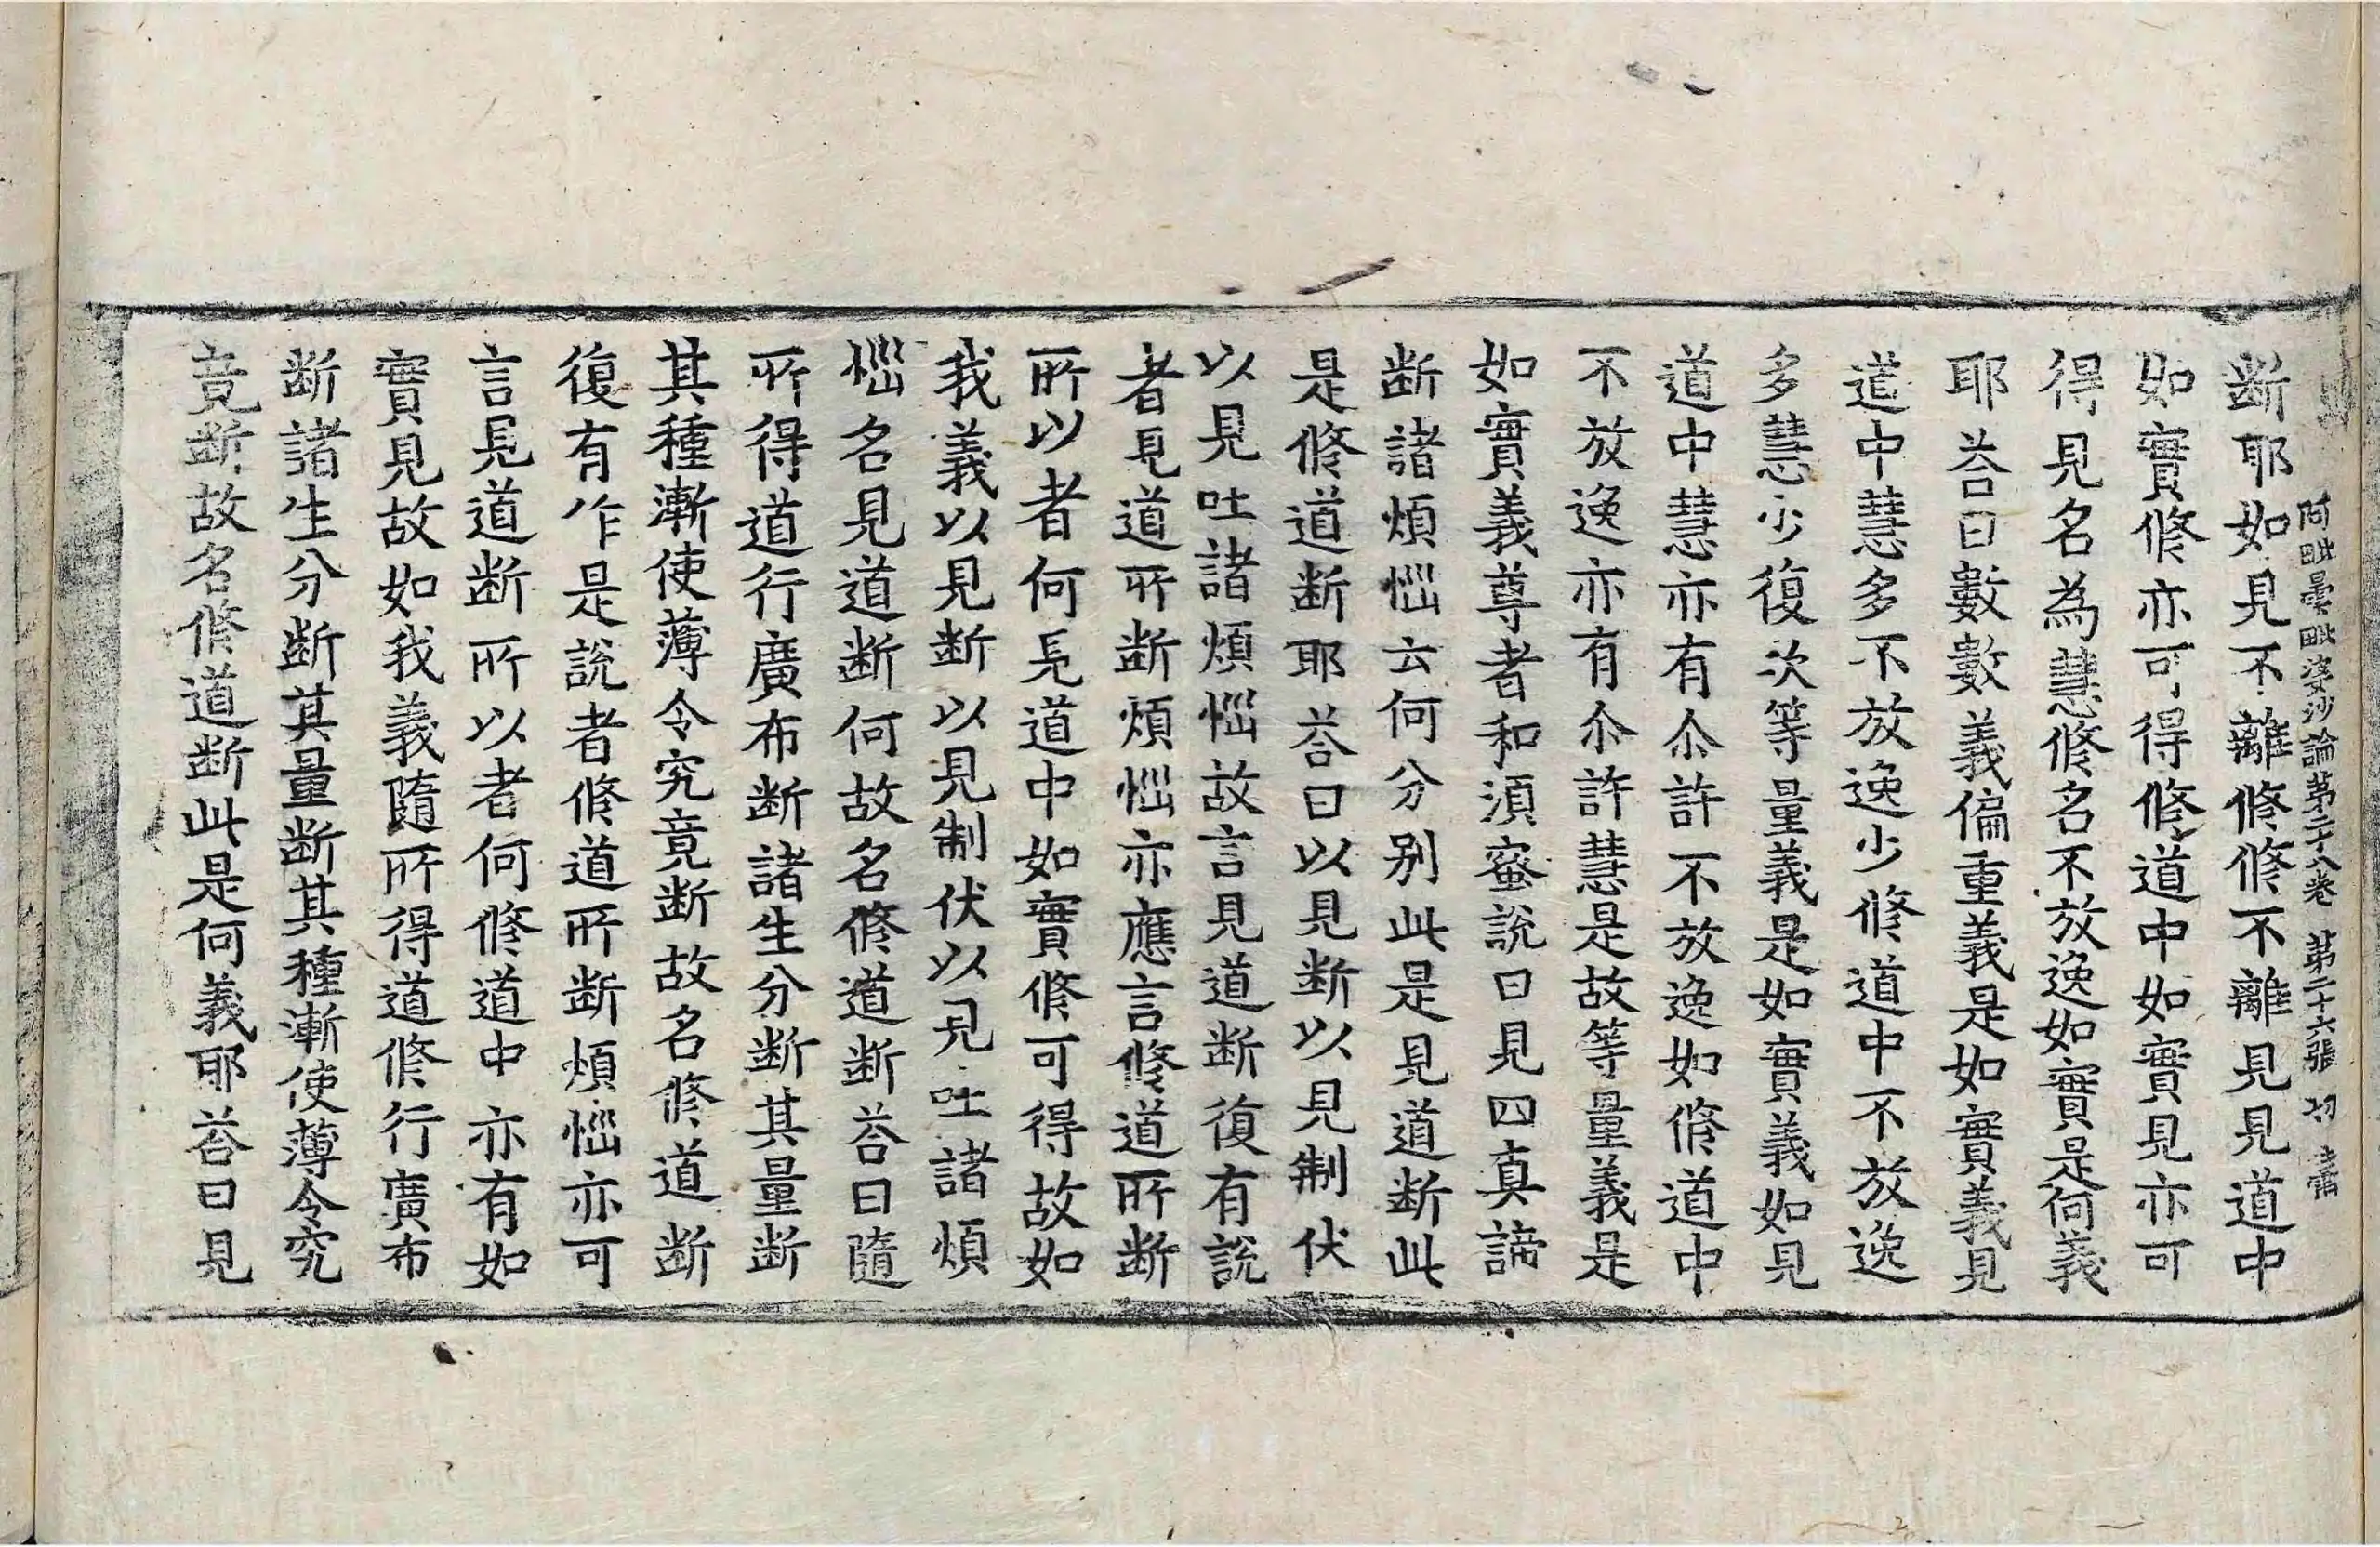 阿毗曇毗婆沙論第二十八卷 第二十六張 切
断耶如見不離修修不離見見道中
如實修亦可得修道中如實見亦可
得見名為慧修名不放逸如實是何義
耶荅曰數數義偏重義是如實義見
道中慧多不放逸少修道中不放逸
多慧少復次等量義是如實義如見
道中慧亦有尒許不放逸如修道中
不放逸亦有尒許慧是故等量義是
如實義尊者和須蜜說曰見四真諦
断諸煩惱云何分别此是見道断此
是修道断耶荅曰以見断以見制伏
以見吐諸煩惱故言見道断復有說
者見道所断煩惱亦應言修道所断
所以者何見道中如實修可得故如
我義以見断以見制伏以見吐諸煩
惱名見道断何故名修道断荅曰隨
所得道行廣布断諸生分断其量断
其種漸使薄令究竟断故名修道断
復有作是說者修道所断煩惱亦可
言見道断所以者何修道中亦有如
實見故如我義隨所得道修行廣布
断諸生分断其量断其種漸使薄令究
竟断故名修道断此是何義耶荅曰見